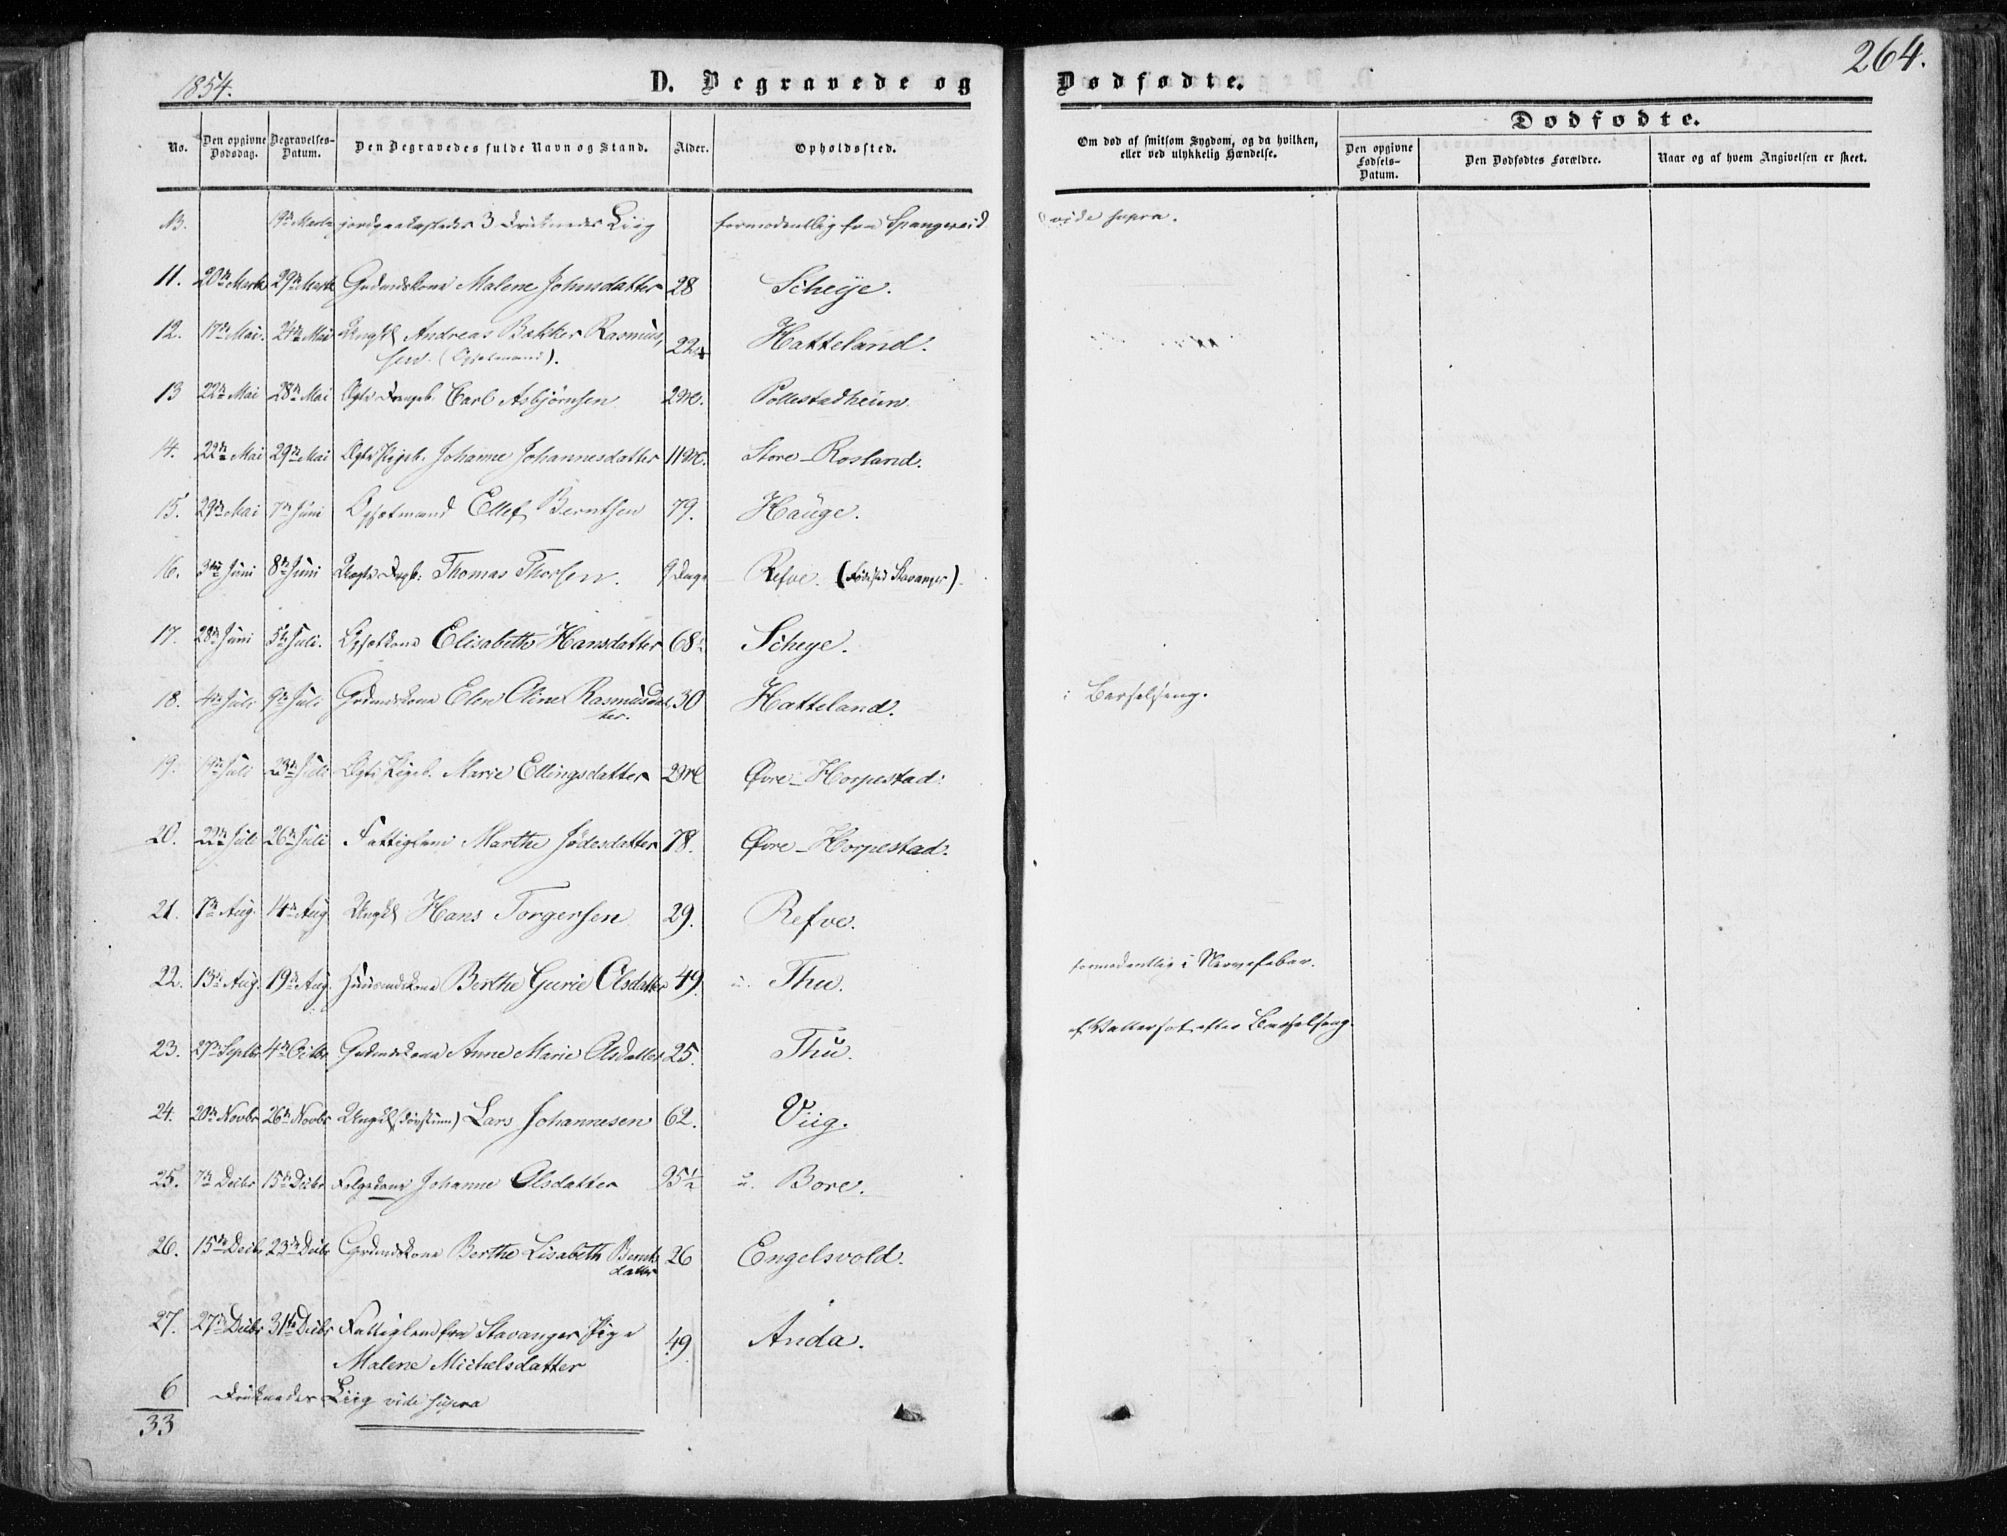 264.
1854.
D. Begravede og Dødfødte.
Dødfødte.
No. Den opgivne Dødsdag. Begravelses-Datum. Den Begravedes fulde Navn og Stand. Alder. Opholdssted.
Om død af smitsom Sygdom, og da hvilken, eller ved ulykkelig Hændelse.
Den opgivne Fødsels-Datum. Den Dødfødtes Forældre. Naar og af hvem Angivelsen er skeet.
jordpaakastedes 3 Druknedes Liig formodentlig fra Spangereid vide supra.
11. 20de Marts 29de Marts Gaardmandskone Malene Johnsdatter 28 Scheije.
12. 17de Mai. 24de Mai Ungk. Andreas Bakker Rasmus- 22 Hatteland.
sen.
13 22de Mai 28de Mai Ægte Drengeb. Carl Asbjørnsen 2 M. Pollestadheien.
14. 22de Mai 29de Mai Ægte Pigeb. Johanne Johannesdatter 11 M. Store-Rosland.
15. 29de Mai 7de Juni Ellef Berntsen 79. Hauge.
16. 3die Juni 8de Juni Uægte Thomas Thorsen. 9 Dage Refve. (Fødested Stavanger).
17. 28de Juni 5te Juli. Elisabeth Hansdatter 68 Scheije.
18. 4de Juli 9de Juli Elen Oline Rasmusdat- 30 Hatteland. i Barselseng.
ter.
19. 19de Juli 23de Juli Ægte Pigeb. Marie Ellingsdatter 2 M Øvre-Horpestad.
20. 22de Juli 26de Juli Fattiglem Marthe Jødesdatter 78. Øvre-Horpestad.
21. 7de Aug. 14de Aug. Ungk. Hans Torgersen 29. Refve.
22. 13de Aug. 19de Aug. Huusmandskone Berthe Gurie Olsdatter 49. u. Thu. formodentlig i Nervefeber.
23. 27de Septbr 4de Octbr. Anne Marie Olsdatter 25. Thu. af Vattersot efter Barselseng.
24. 20de Novbr 26de Novbr Ungkl. (Døvstum) Lars Johannesen 62. Viig.
25. 7de Decbr 15de Decbr Johanne Olsdatter 95½ u. Bore.
26. 15de Decbr 23de Decbr Berthe Lisabeth Bernts- 26 Engelsvold.
datter
27. 27de Decbr 31te Decbr Fattiglem fra Stavanger Pige 49. Anda.
Malene Michelsdatter
6 Druknedes Liig vide supra
33